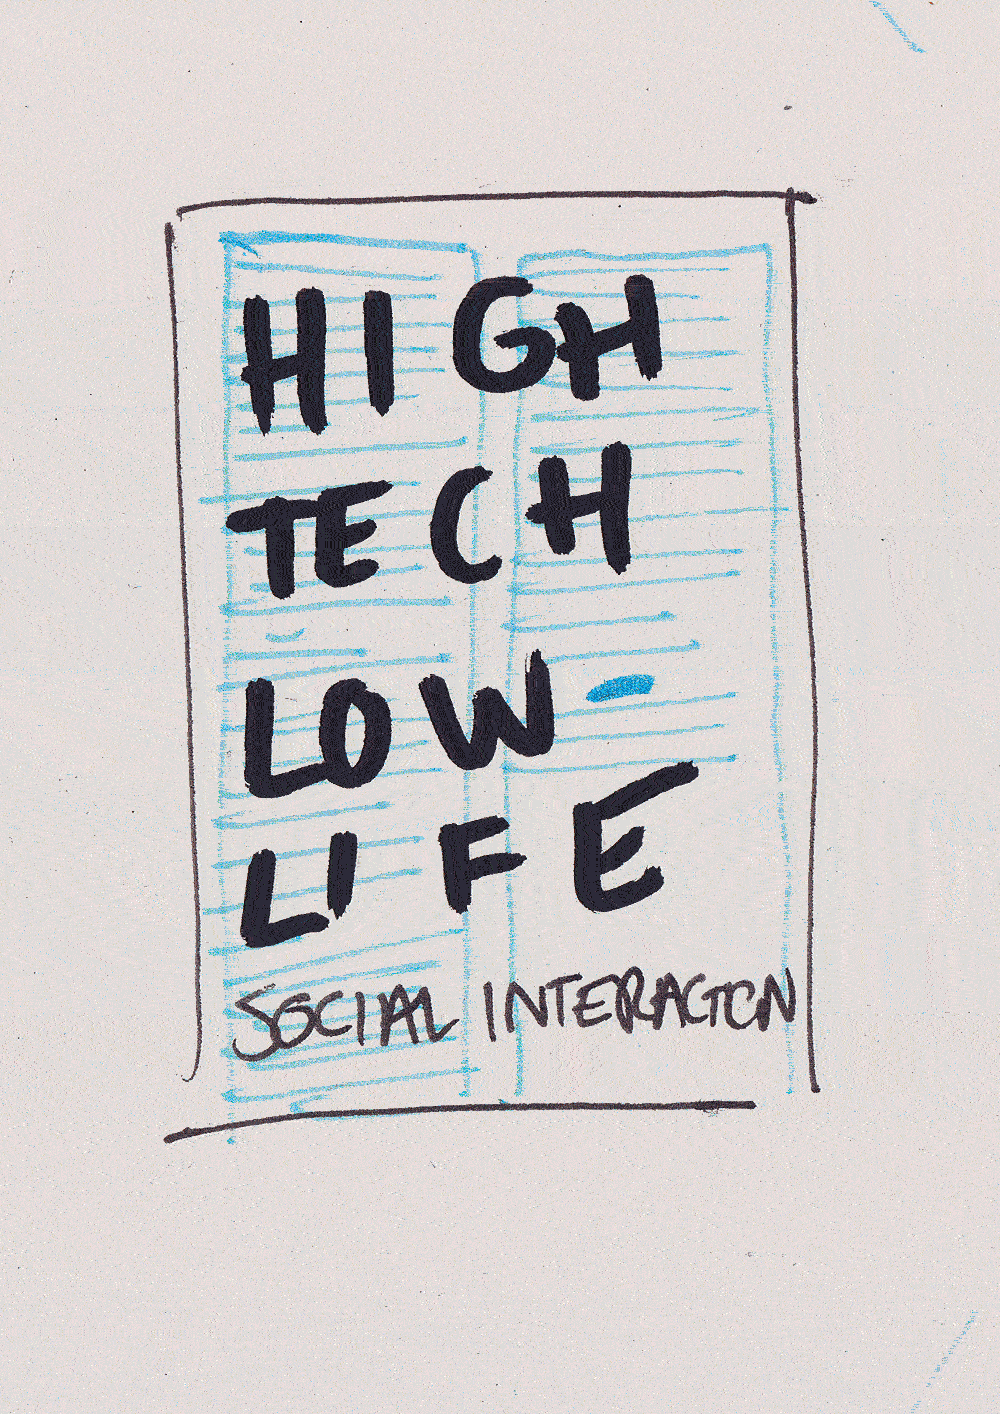 HIGH
TECH
LOW
LIFE
SOCIAL INTERACTION